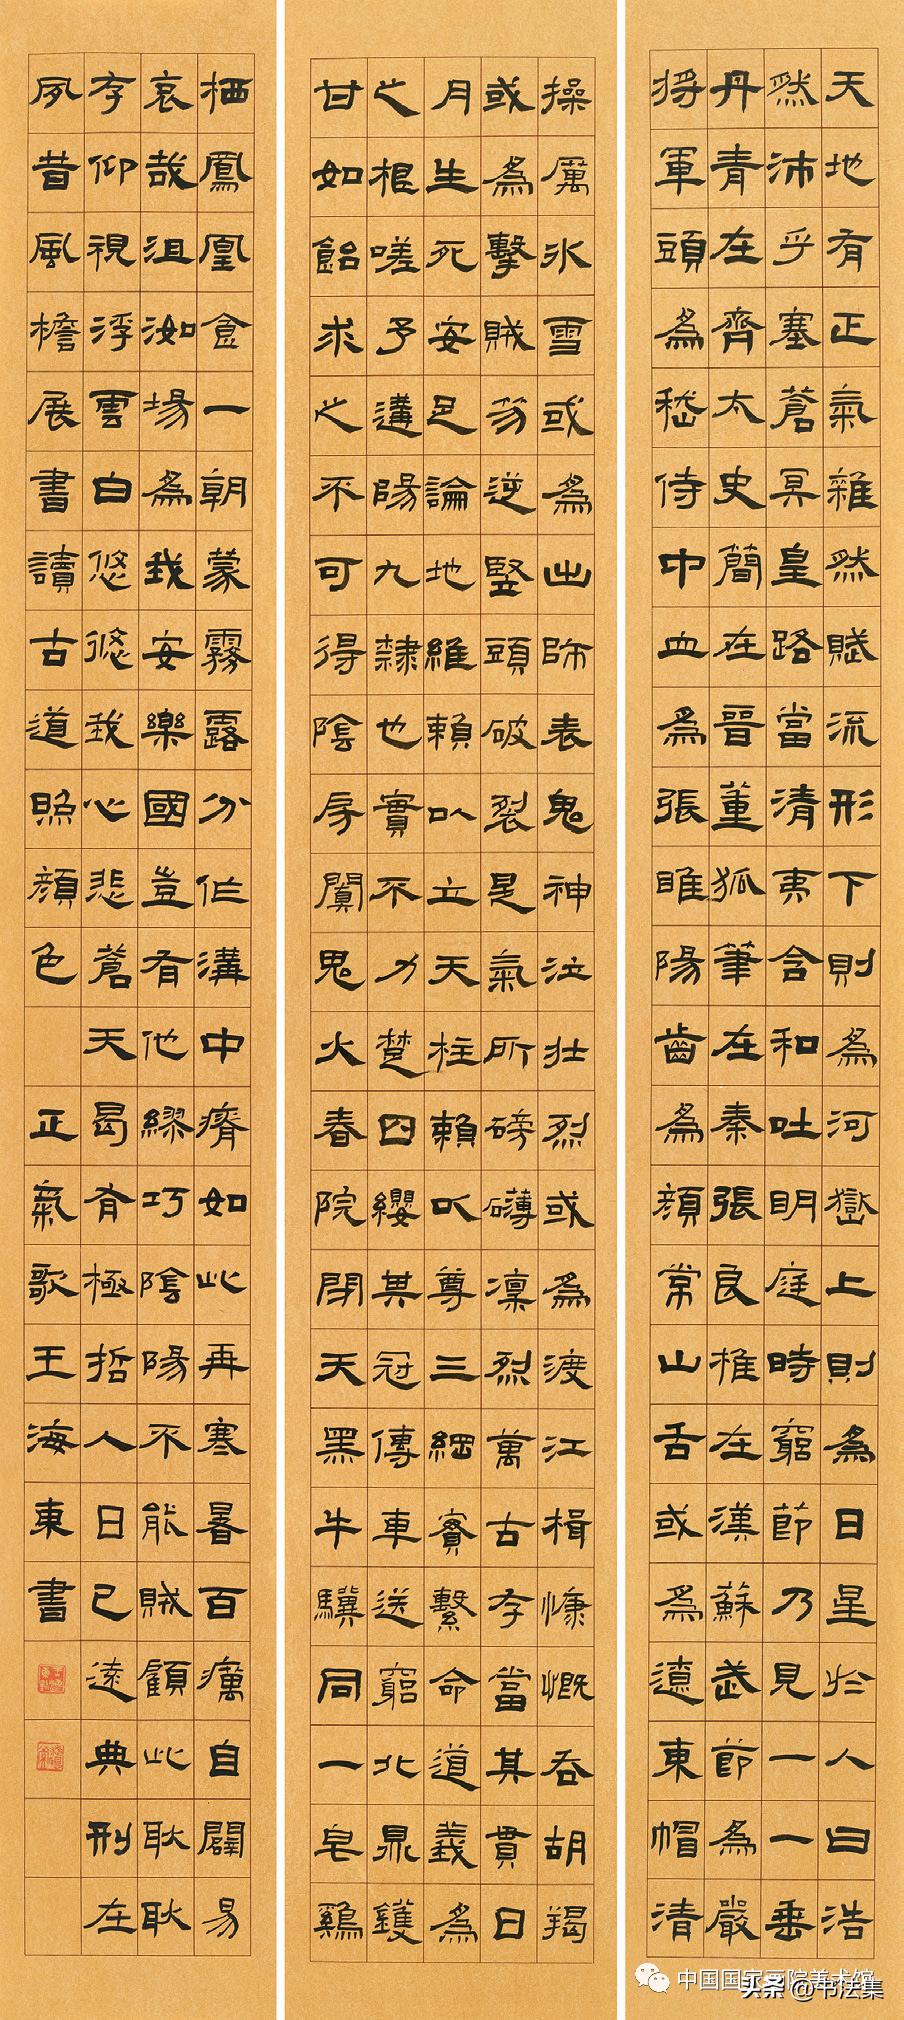 天地有正氣雜然賦流形下則為河嶽上則為日星於人曰浩
然沛乎塞蒼冥皇路當清夷含和吐明庭時窮節乃見一一垂
丹青在齊太史簡在晉董狐筆在秦張良椎在漢蘇武節為嚴
將軍頭為嵇侍中血為張睢陽齒為顏常山舌或為遼東帽清
操厲冰雪或為出師表鬼神泣壯烈或為渡江楫慷慨吞胡羯
或為擊賊笏逆豎頭破裂是氣所磅礴凜烈萬古存當其貫日
月生死安足論地維賴以立天柱賴以尊三綱實繫命道義為
之根嗟予遘陽九隸也實不力楚囚纓其冠傳車送窮北鼎鑊
甘如飴求之不可得陰房闃鬼火春院閉天黑牛驥同一皂鷄
栖鳳凰食一朝蒙霧露分作溝中瘠如此再寒暑百癘自闢易
哀哉沮洳場為我安樂國豈有他繆巧陰陽不能賊顧此耿耿
存仰視浮雲白悠悠我心悲蒼天曷有極哲人日已遠典刑在
夙昔風檐展書讀古道照顏色 正氣歌王海東書
中国国家画院美术馆
头条 @书法集